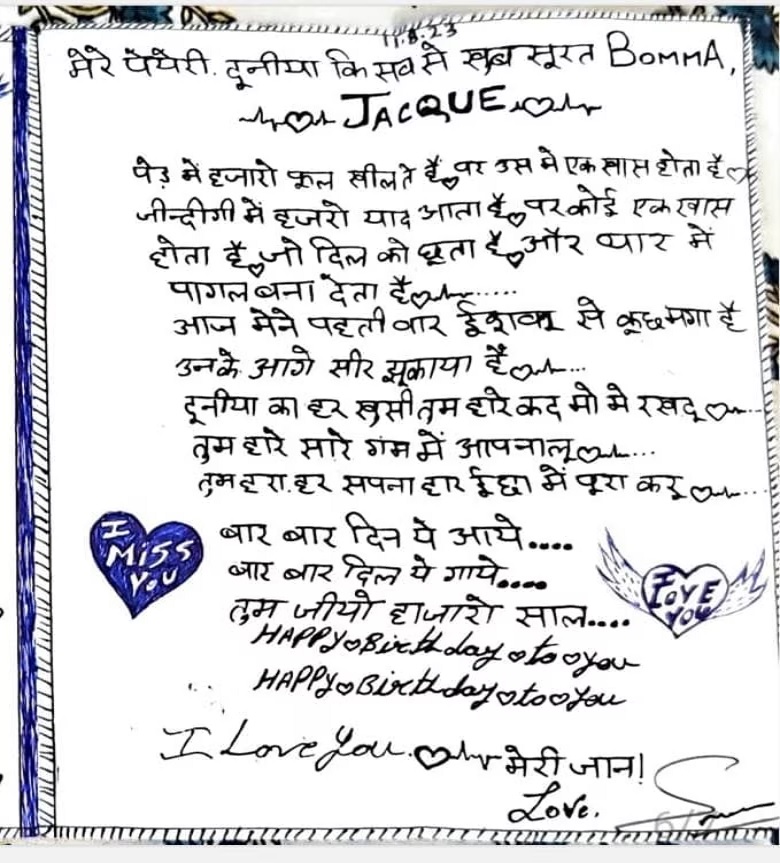 11.8.23
मेरे पेयेरी. दूनीया कि सब से खुब सूरत BOMMA,
JACQUE
पेड़ में हजारो फूल खीलते हैं, पर उस मे एक खास होता है
जीन्दीगी में हजरो याद आता है, पर कोई एक खास
होता है, जो दिल को छूता है, और प्यार में
पागल बना देता है......
आज मेने पहली बार ईशवर से कूछ मगा है
उनके आगे सीर झूकाया है...
दूनीया का हर खुसी तुम हारे कद मो मे रखदू...
तुम हारे सारे गम में आपनालू...
तुम हरा. हर सपना हार ईछा में पूरा करू...
बार बार दिन ये आये....
I MISS YOU
बार बार दिल ये गाये....
I LOVE YOU
तुम जीयो हाजारो साल....
HAPPY Birthday to you
HAPPY Birthday to you
I Love You. मेरी जान!
Love.